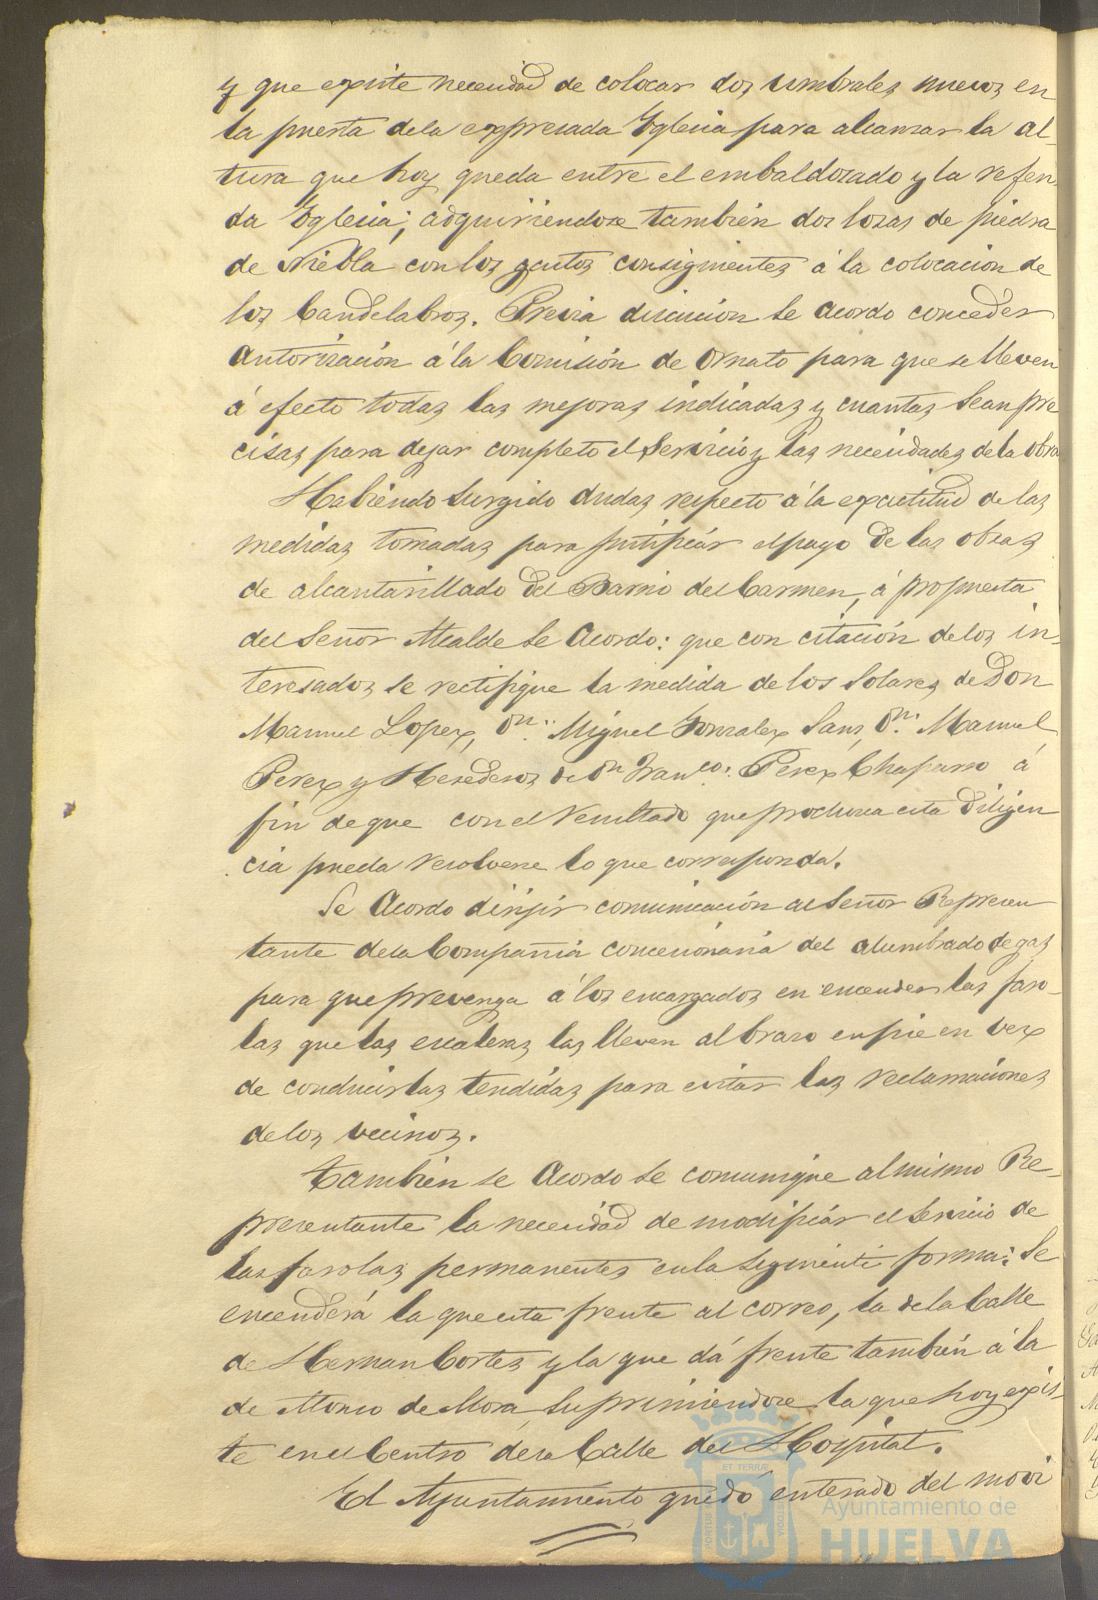 y que existe necesidad de colocar dos umbrales nuevos en
la puerta dela expresada Yglesia para alcanzar la al-
tura que hoy queda entre el embaldosado y la referi
da Yglesia; adquiriendose también dos losas de piedra
de Niebla con los gastos consiguientes á la colocacion de
los Candelabros. Previa discusion se acordo conceder
autorizacion á la Comisión de Ornato para que se lleven
á efecto todas las mejoras indicadas y cuantas sean pre
cisas para dejar completo el servicio y las necesidades dela obra
Habiendo surgido dudas respecto á la exactitud de las
medidas tomadas para justificar el pago de las obras
de alcantarillado del Barrio del Carmen, á propuesta
del Señor Alcalde se acordo: que con citación de los in-
teresados se rectifique la medida de los solares de Don
Manuel Lopez, Dn. Miguel Gonzalez Sanz, Dn. Manuel
Perez y Herederos de Dn Franco. Perez Chaparro á
fin de que con el resultado que produzca esta diligen
cia pueda resolverse lo que corresponda.
Se acordo dirijir comunicación al Señor Represen
tante dela Compañia concesionaria del alumbrado de gas
para que prevenga á los encargados en encender las faro-
las que las escaleras las lleven al brazo en pie en vez
de conducirlas tendidas para evitar las reclamaciones
de los vecinos.
También se acordo se comunique al mismo Re-
presentante la necesidad de modificar el servicio de
las farolas permanentes en la siguiente forma: Se
encenderá la que esta frente al correo, la de la Calle
de Hernan Cortes y la que dá frente también á la
de Alonso de Mora, suprimiendose la que hoy exis-
te en el Centro dela Calle del Hospital.
El Ayuntamiento quedó enterado del movi
Ayuntamiento de
HUELVA